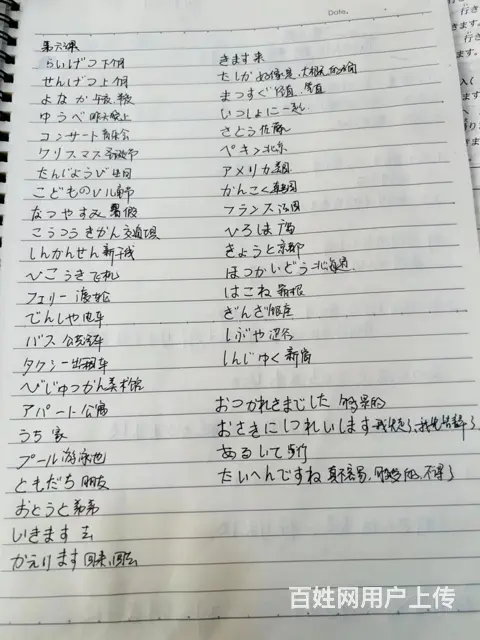 Date.
第六课
らいげつ 下个月
せんげつ 上个月
よなか 午夜、半夜
ゆうべ 昨天晚上
コンサート 音乐会
クリスマス 圣诞节
たんじょうび 生日
こどものひ 儿童节
なつやすみ 暑假
こうつうきかん 交通工具
しんかんせん 新干线
ひこうき 飞机
フェリー 渡轮
でんしゃ 电车
バス 公共汽车
タクシー 出租车
びじゅつかん 美术馆
アパート 公寓
うち 家
プール 游泳池
ともだち 朋友
おとうと 弟弟
いきます 去
かえります 回来、回去
きます 来
たしか 好像是、大概
まっすぐ 径直、笔直
いっしょに 一起
さとう 佐藤
ペキン 北京
アメリカ 美国
かんこく 韩国
フランス 法国
ひろしま 广岛
きょうと 京都
ほっかいどう 北海道
はこね 箱根
ぎんざ 银座
しぶや 涩谷
しんじゅく 新宿
おつかれさまでした 够累的
おさきにしつれいします 我先走了、我先告辞了
あるいて 步行
たいへんですね 真不容易、够受的、不得了
百姓网用户上传